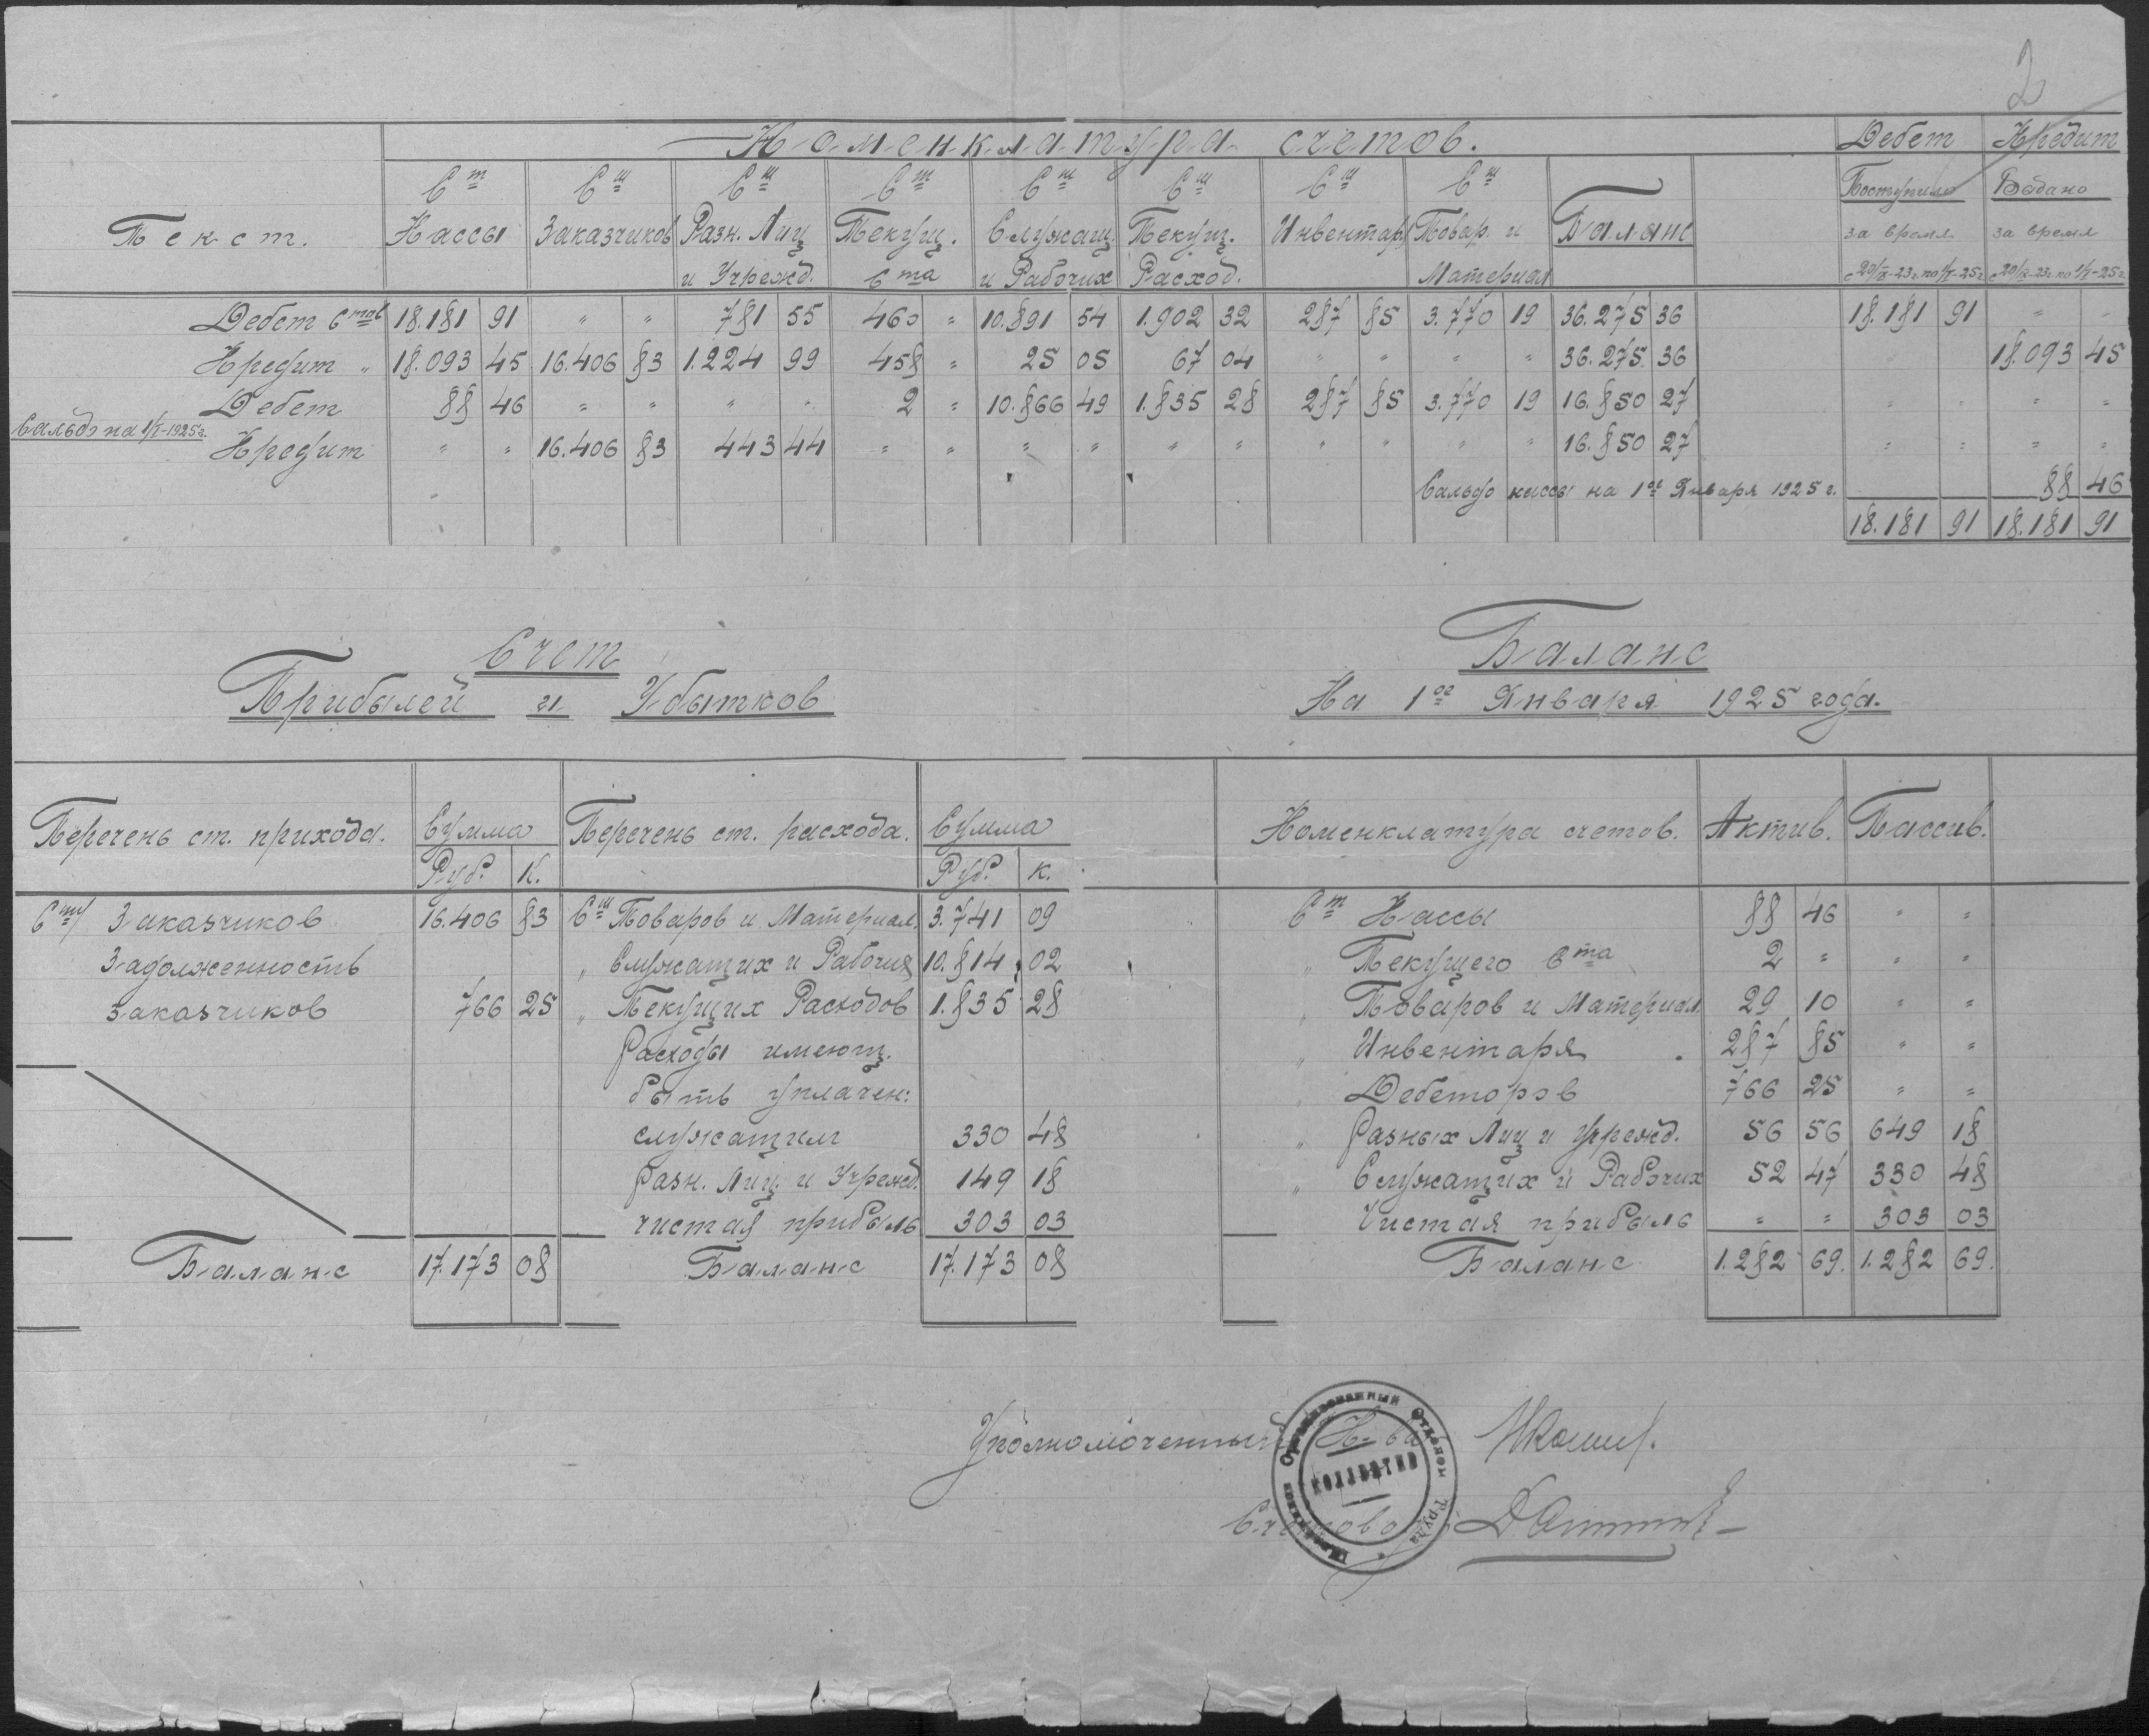 2
Номенклатура счетов. Дебет Кредит
Ст Сч Сч Ст Сч Сч Сч Сч Поступило Выдано
Текст. Кассы Заказчиков Разн. Лиц Текущ. Служащ. Текущ. Инвентар. Товар. и Баланс за время за время
и Учрежд. Ста и Рабочих Расход. Материал с 20/IX-23г. по 1/I-25г. с 20/IX-23г. по 1/I-25г.
Дебет Стов 18.181 91 " " 781 55 460 " 10.891 54 1.902 32 287 85 3.770 19 36.275 36 18.181 91 " "
Кредит " 18.093 45 16.406 83 1.224 99 458 " 25 05 67 04 " " " " 36.275 36 18.093 45
Дебет 88 46 " " " " 2 " 10.866 49 1.835 28 287 85 3.770 19 16.850 27 " " " "
Сальдо на 1/I-1925г.
Кредит " " 16.406 83 443 44 " " " " " " " " " " 16.850 27 " " " "
Сальдо кассы на 1ое Января 1925 г. 88 46
18.181 91 18.181 91
Счет
Прибылей и Убытков
Баланс
На 1ое Января 1925 года.
Перечень ст. прихода. Сумма Перечень ст. расхода. Сумма
Руб. К. Руб. К.
Сту Заказчиков 16.406 83 Сч Товаров и Материал. 3.741 09
Задолженность " Служащих и Рабочих 10.814 02
заказчиков 766 25 " Текущих Расходов 1.835 28
Расходы имеющ.
быть уплачен:
служащим 330 48
Разн. Лиц. и Учрежд. 149 18
чистая прибыль 303 03
Баланс 17.173 08 Баланс 17.173 08
Номенклатура счетов. Актив. Пассив.
Ст Кассы 88 46 " "
" Текущего Ста 2 " " "
" Товаров и Материал. 29 10 " "
" Инвентаря 287 85 " "
" Дебеторов 766 25 " "
" Разных Лиц и Учрежд. 56 56 649 18
" Служащих и Рабочих 52 47 330 48
Чистая прибыль " " 303 03
Баланс 1.282 69. 1.282 69.
Уполномоченный К-ва
Счетовод
Организованный Отделом Труда
КОЛЛЕКТИВ